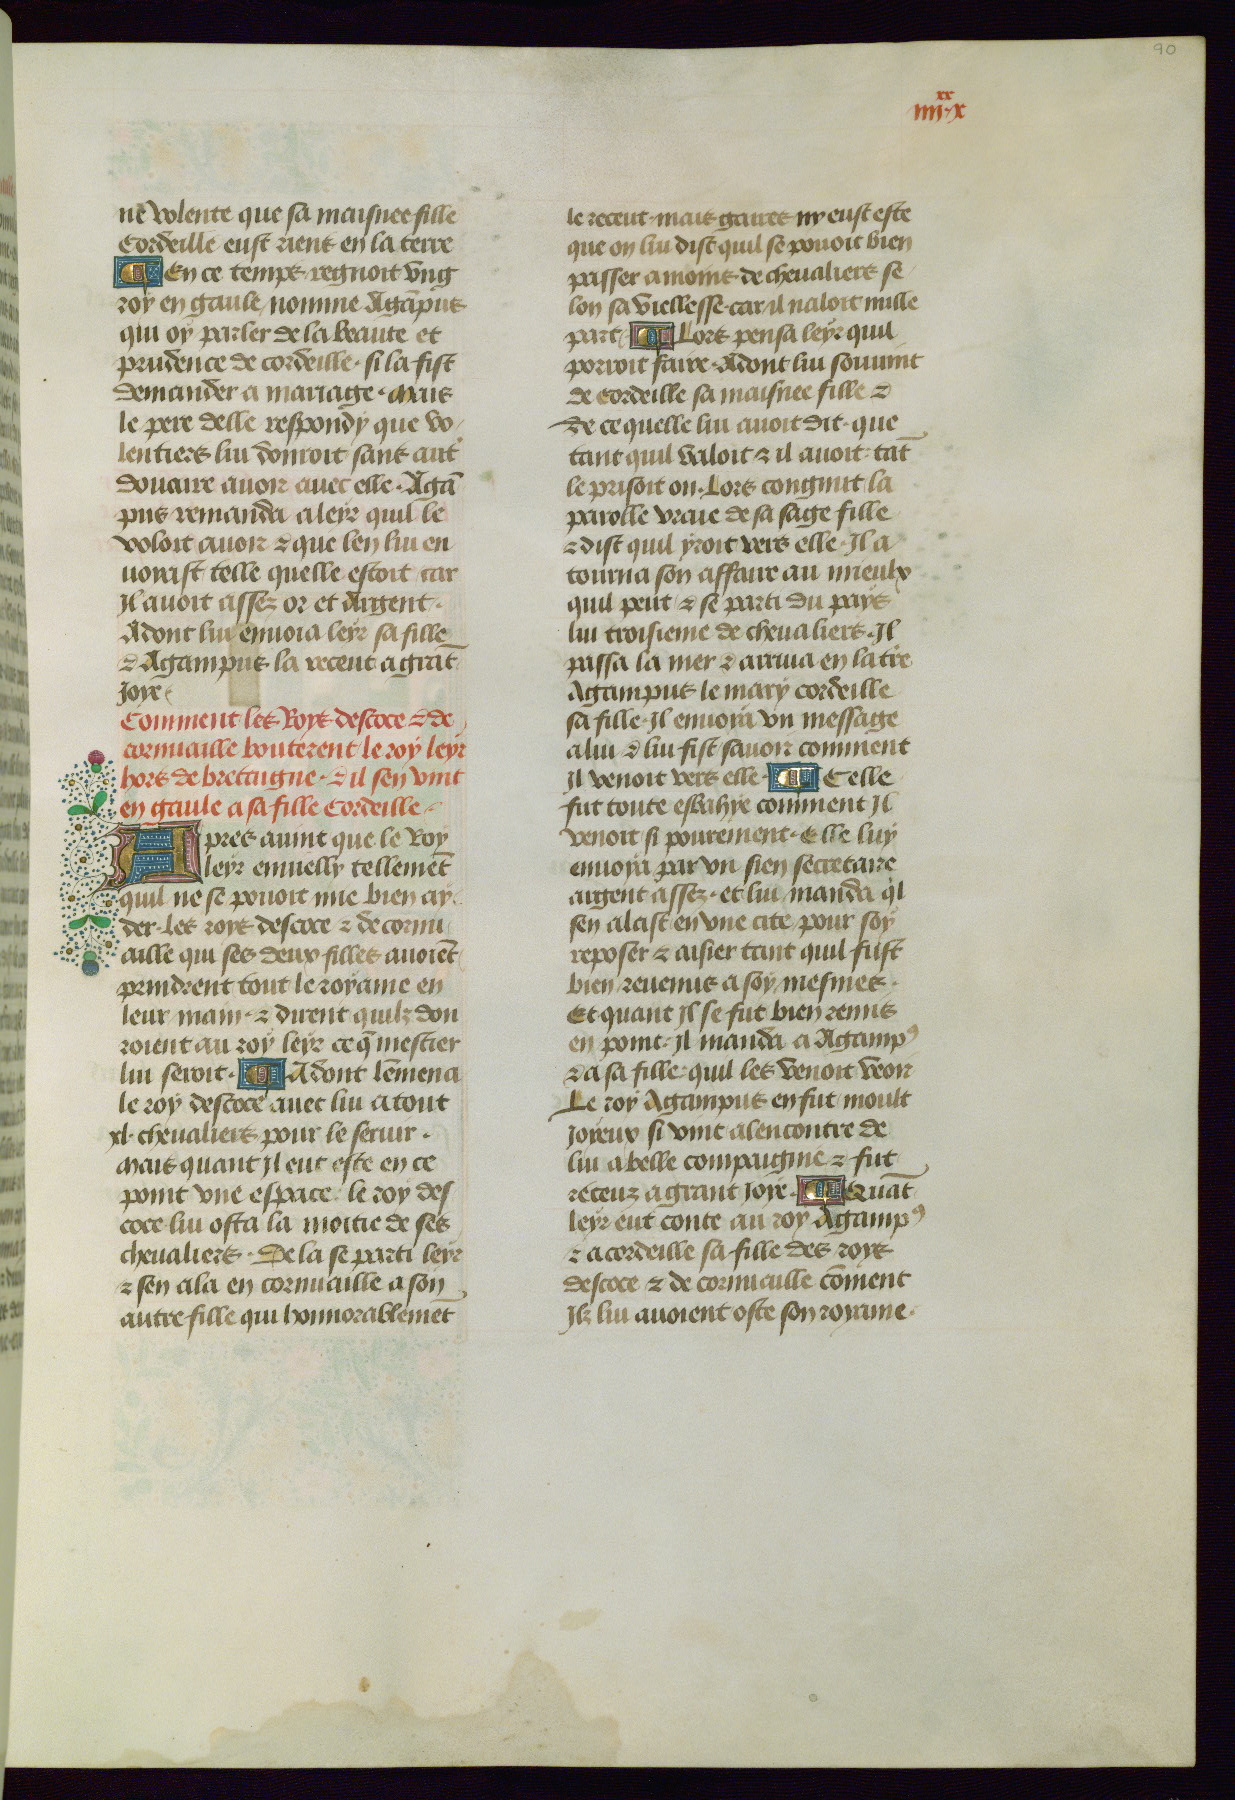 90
iiii xx x
ne volente que sa maisnee fille
Cordeille eust riens en la terre
En ce temps regnoit vng
roy en gaule nomme Agāpus
qui oy parler de la beaute et
prudence de cordeille. si la fist
demander a mariage. Mais
le pere delle respondy que vo
lentiers lui donroit sans aut'
douaire auoir auec elle. Agā
pus remanda a leyr quil le
voloit auoir & que len lui en
uoyast telle quelle estoit car
Il auoit assez or et Argent.
Adont lui enuoia leyr sa fille
& Agampus la receut a grāt
Joye
Comment les Roys descoce & de
cornuaille bouterent le roy leyr
hors de bretaigne. & il sen vint
en gaule a sa fille Cordeille
Apres auint que le Roy
leyr enuielly tellemēt
quil ne se pouoit mie bien ay
der. les roys descoce & de cornu
aille qui ses deux filles auoiēt
prindrent tout le royame en
leur main. & dirent quilz don
roient au roy leyr ce q̄ mestier
lui seroit. Adont lēmena
le roy descoce auec lui a tout
xl. cheualiers pour le seruir.
Mais quant Il eut este en ce
point vne espace. le roy des
coce lui osta la moitie de ses
cheualiers. De la se parti leyr
& sen ala en cornuaille a son
autre fille qui honnorablemēt
le receut. mais gaires ny eust este
que on lui dist quil se pouoit bien
passer a moins de cheualiers se
lon sa viellesse. car il naloit nulle
part. Lors pensa leyr quil
porroit faire. Adont lui souuint
de Cordeille sa maisnee fille &
de ce quelle lui auoit dit. que
tant quil valoit & il auoit. tāt
le prisoit on. Lors congnut la
parolle vraie de sa sage fille
& dist quil yroit vers elle. Il a
tourna son affaire au mieulx
quil peut & se parti du pays
lui troisieme de cheualiers. Il
passa la mer & arriua en la tr̄e
Agampus le mary cordeille
sa fille. Il enuoya vn message
a lui & lui fist sauoir comment
Il venoit vers elle. Celle
fut toute esbahye comment Il
venoit si pourement. Elle luy
enuoya par vn sien secretaire
argent assez. et lui manda q'l
sen alast en vne cite pour soy
reposer & aisier tant quil fust
bien reuenus a soy mesmes.
Et quant Il se fut bien remis
en point. Il manda a Agamp9
& a sa fille. quil les venoit veoir
Le roy Agampus en fut moult
Joyeux si vint alencontre de
lui a belle compaignie & fut
receuz a grant Joye. Quāt
leyr eut conte au roy Agamp9
& a cordeille sa fille des roys
descoce & de cornuaille cōment
Ilz lui auoient oste son royame.